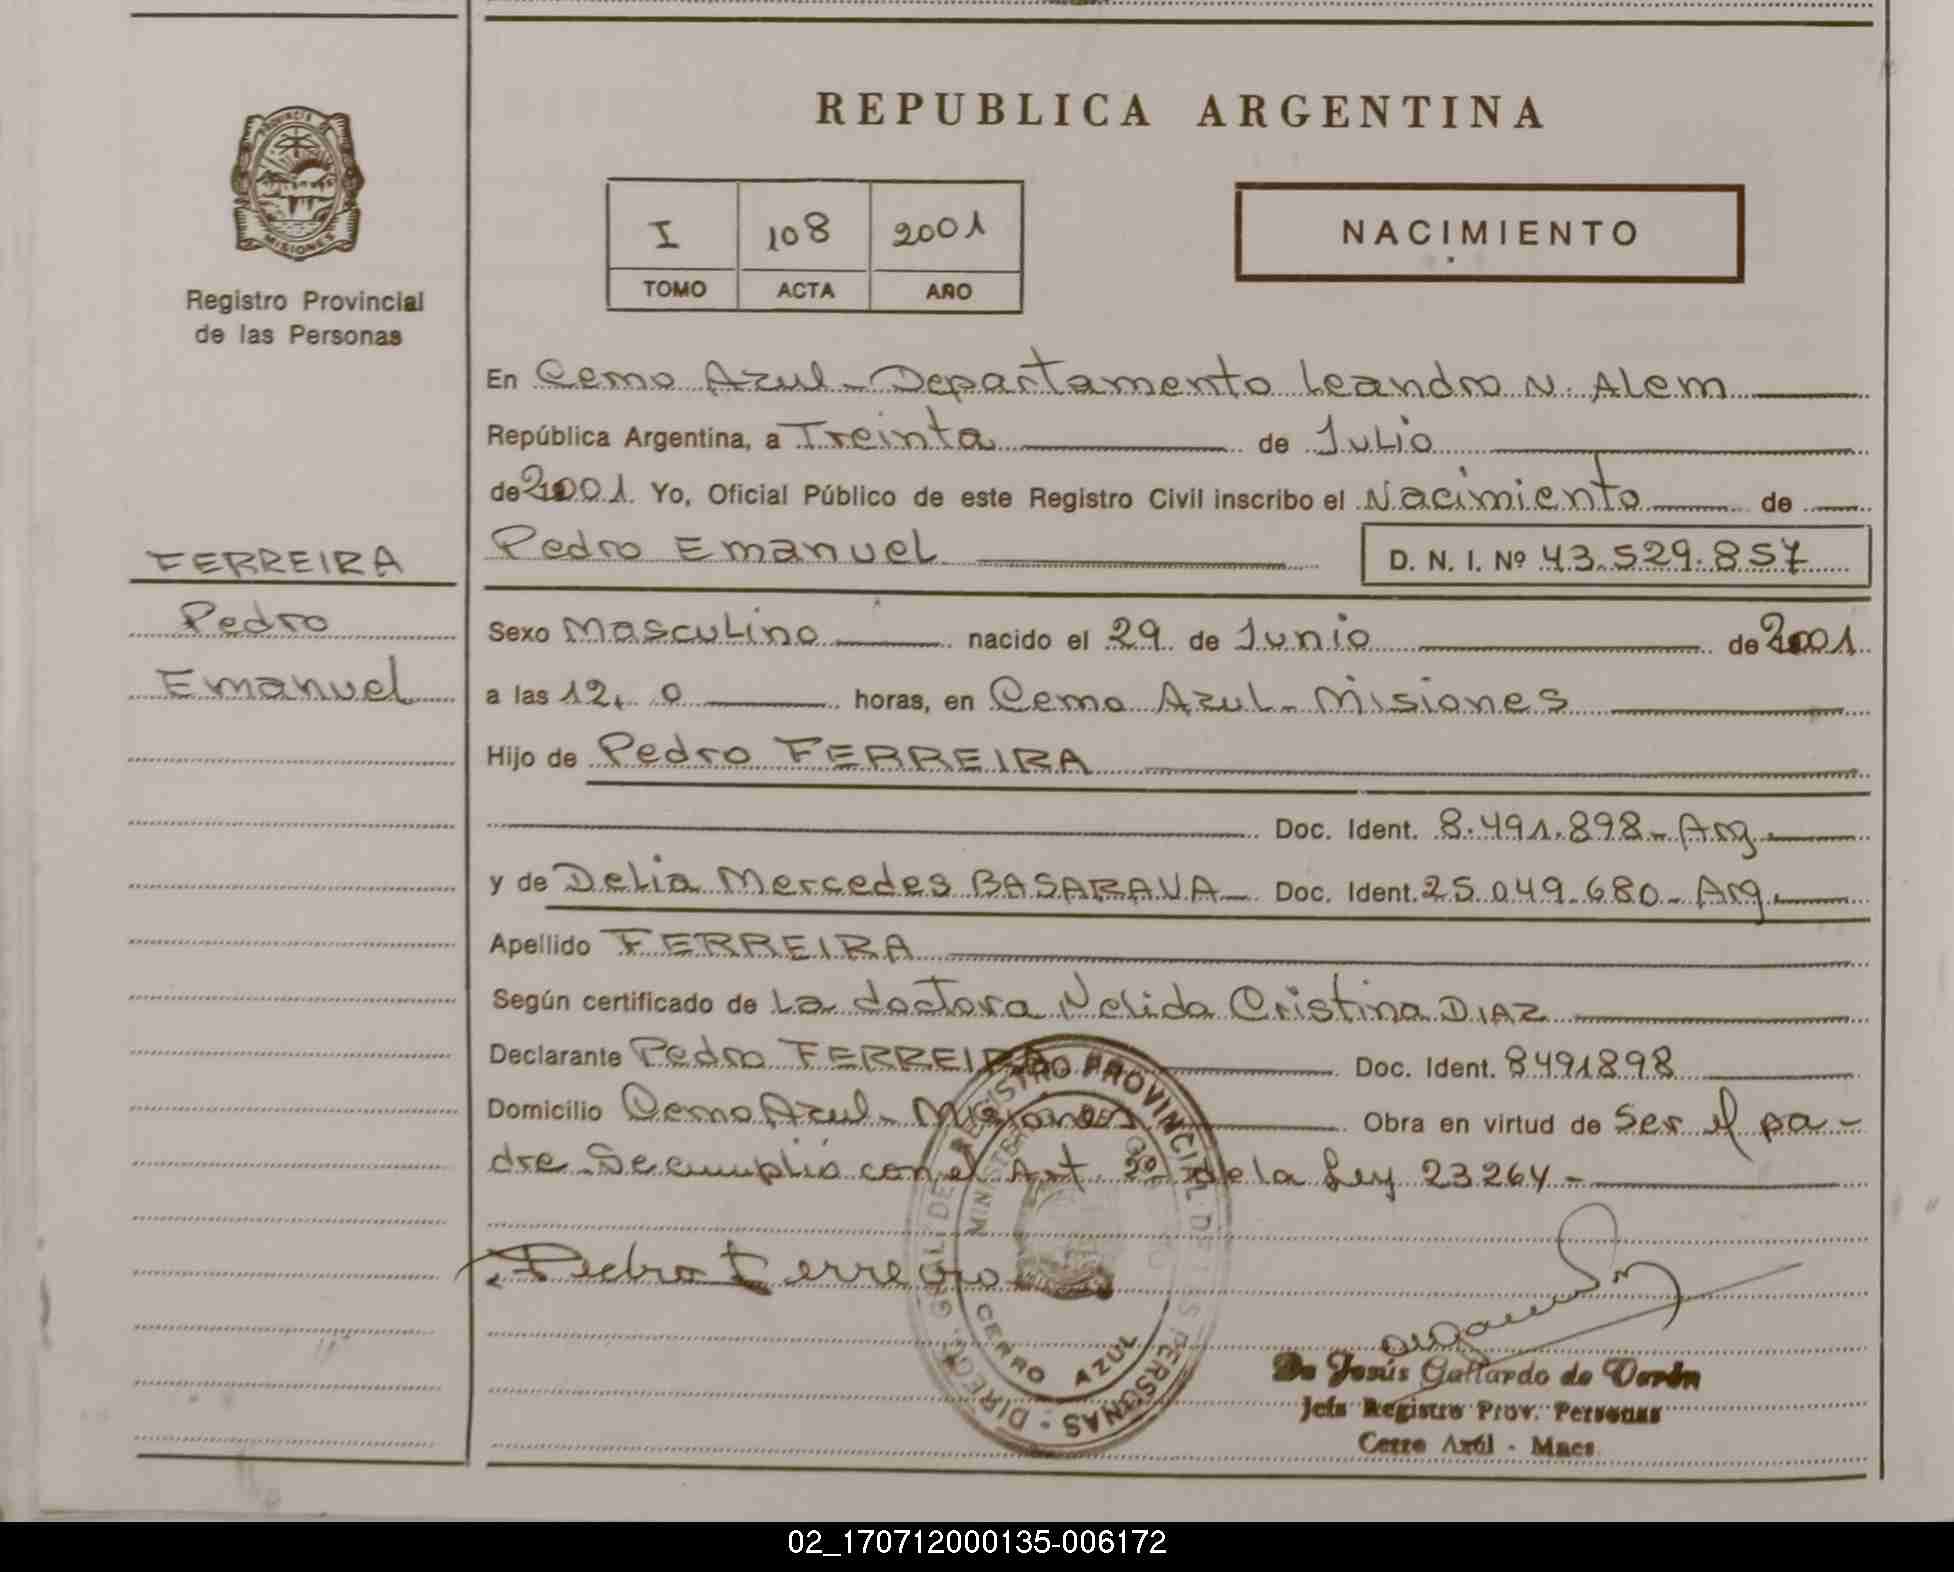 REPUBLICA ARGENTINA
PROVINCIA DE
MISIONES
Registro Provincial
de las Personas
I 108 2001
TOMO ACTA AÑO
NACIMIENTO
En Cerro Azul - Departamento Leandro N. Alem
República Argentina, a Treinta de Julio
de 2001. Yo, Oficial Público de este Registro Civil inscribo el Nacimiento de
FERREIRA
Pedro Emanuel
D. N. I. Nº 43.529.857
Pedro
Emanuel
Sexo Masculino nacido el 29 de Junio de 2001
a las 12, 0 horas, en Cerro Azul - Misiones
Hijo de Pedro FERREIRA
Doc. Ident. 8.491.898 - Arg.
y de Delia Mercedes BASARAVA - Doc. Ident. 25.049.680 - Arg.
Apellido FERREIRA
Según certificado de La doctora Nelida Cristina DIAZ
Declarante Pedro FERREIRA Doc. Ident. 8491898
Domicilio Cerro Azul - Misiones Obra en virtud de Ser el pa-
dre. Se cumplió con el Art. 2º de la Ley 23264 -
Pedro Ferreira
DIREC. GRAL. DEL REGISTRO PROVINCIAL DE LAS PERSONAS
CERRO AZUL
De Jesús Gallardo de Verón
Jefa Registro Prov. Personas
Cerro Azul - Mnes
02_170712000135-006172